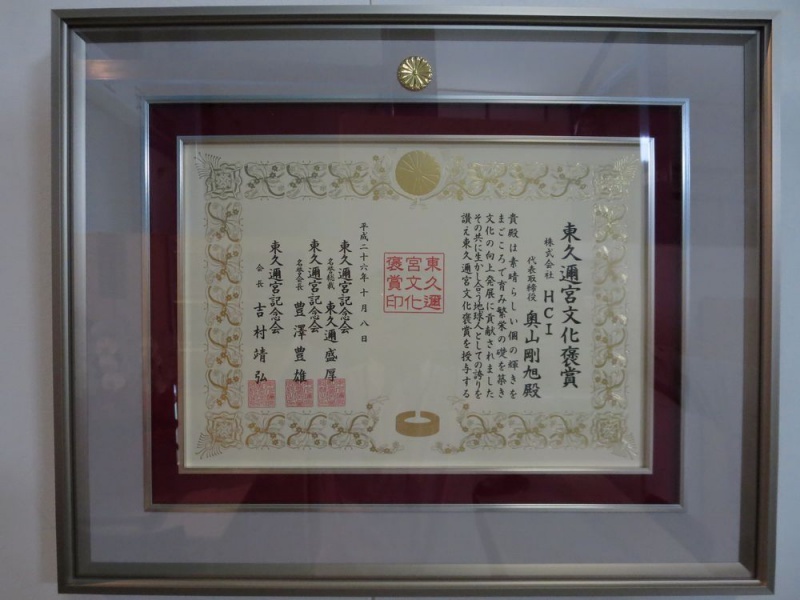 東久邇宮文化褒賞
株式会社 HCI
代表取締役 奥山剛旭殿
貴殿は素晴らしい個の輝きを
まごころで育み繁栄の礎を築き
文化の向上発展に貢献されました
その共に生かし合う地球人としての誇りを
讃え東久邇宮文化褒賞を授与する
東久邇
宮文化
褒賞印
平成二十六年十月八日
東久邇宮記念会
名誉総裁 東久邇盛厚
東久邇宮記念会
名誉会長 豊澤豊雄
東久邇宮記念会
会長 吉村靖弘